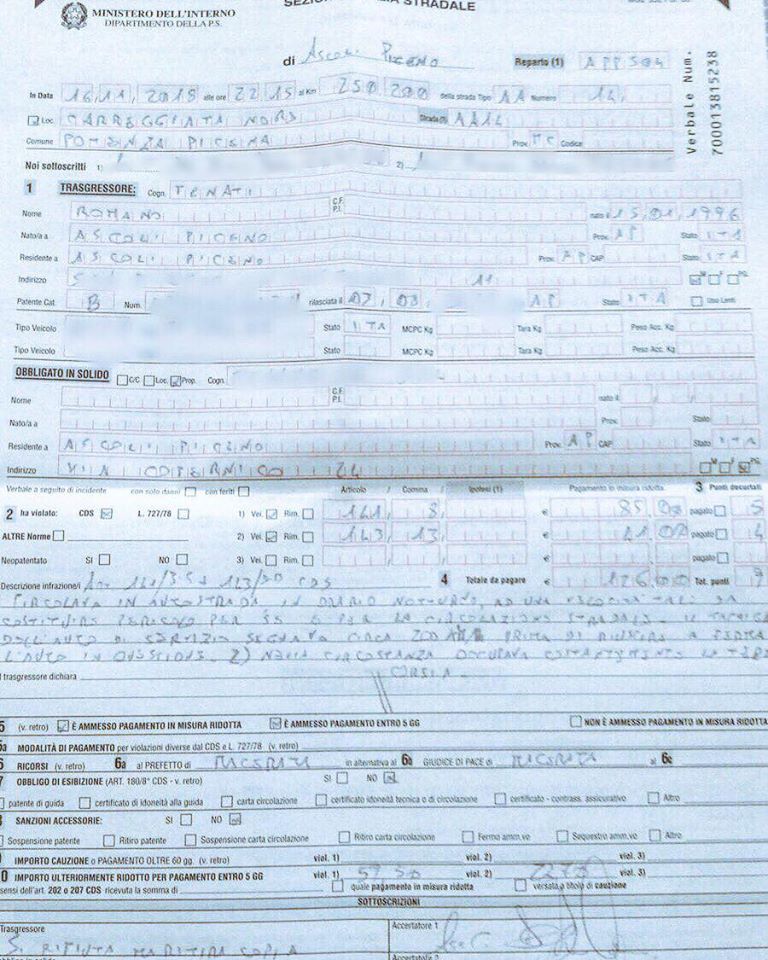 MINISTERO DELL'INTERNO
DIPARTIMENTO DELLA P.S.
STRADALE
di Ascoli Piceno Reparto (1) APP504
In Data 16,11,2018 alle ore 22 15 al Km 250 200 della strada Tipo AA Numero 14,
Loc. CARREGGIATA NORD Strada(*) AA14
Comune POTENZA PICENA Prov. MC Codice
Verbale Num. 700013815238
Noi sottoscritti 1) 2)
1 TRASGRESSORE: Cogn. TENATI
C.F. P.I.
Nome ROMANO nato il 15,01,1996
Nato/a a ASCOLI PICENO Prov. AP Stato ITA
Residente a ASCOLI PICENO Prov. AP CAP Stato ITA
Indirizzo S 11 M F PG
Patente Cat. B Num. rilasciata il 07,03, AP Stato ITA Uso Lenti
Tipo Veicolo Stato ITA MCPC Kg Tara Kg Peso Acc. Kg
Tipo Veicolo Stato MCPC Kg Tara Kg Peso Acc. Kg
OBBLIGATO IN SOLIDO C/C Loc. Prop. Cogn.
C.F. P.I.
Nome nato il
Nato/a a Prov. Stato
Residente a ASCOLI PICENO Prov. AP CAP Stato ITA
Indirizzo VIA COPERNICO 24 M F PG
Verbale a seguito di incidente con solo danni con feriti Articolo / Comma / Ipotesi (1) Pagamento in misura ridotta 3 Punti decurtati
2 ha violato: CDS L. 727/78 1) Vei. Rim. 141, 8, € 85,00 pagato 5
ALTRE Norme 2) Vei. Rim. 143, 13, € 41,00 pagato 4
Neopatentato SI NO 3) Vei. Rim. € pagato
Descrizione infrazione/i CDS 4 Totale da pagare € 126,00 Tot. punti 9
CIRCOLAVA IN AUTOSTRADA IN ORARIO NOTTURNO, AD UNA VELOCITA' TALE DA
COSTITUIRE PERICOLO PER SE E PER LA CIRCOLAZIONE STRADALE. IL
DELL'AUTO DI SERVIZIO SEGNAVA CIRCA 200 PRIMA DI RIUSCIRE A
L'AUTO IN QUESTIONE. 2) NELLA CIRCOSTANZA OCCUPAVA COSTANTEMENTE LA
CORSIA.
l trasgressore dichiara
5 (v. retro) È AMMESSO PAGAMENTO IN MISURA RIDOTTA È AMMESSO PAGAMENTO ENTRO 5 GG NON È AMMESSO PAGAMENTO IN MISURA RIDOTTA
5a MODALITÀ DI PAGAMENTO per violazioni diverse dal CDS e L. 727/78 (v. retro)
6 RICORSI (v. retro) 6a al PREFETTO di MACERATA in alternativa al 6b GIUDICE DI PACE di MACERATA al 6c
7 OBBLIGO DI ESIBIZIONE (ART. 180/8° CDS - v. retro) SI NO
patente di guida certificato di idoneità alla guida carta circolazione certificato idoneità tecnica o di circolazione certificato - contrass. assicurativo Altro
SANZIONI ACCESSORIE: SI NO
Sospensione patente Ritiro patente Sospensione carta circolazione Ritiro carta circolazione Fermo amm.vo Sequestro amm.vo Altro
IMPORTO CAUZIONE o PAGAMENTO OLTRE 60 gg. (v. retro) viol. 1) viol. 2) viol. 3)
0 IMPORTO ULTERIORMENTE RIDOTTO PER PAGAMENTO ENTRO 5 GG viol. 1) 59,50 viol. 2) viol. 3)
sensi dell'art. 202 o 207 CDS ricevuta la somma di quale pagamento in misura ridotta versata a titolo di cauzione
SOTTOSCRIZIONI
Trasgressore Accertatore 1
SI RIFIUTA MA RITIRA COPIA
Accertatore 2